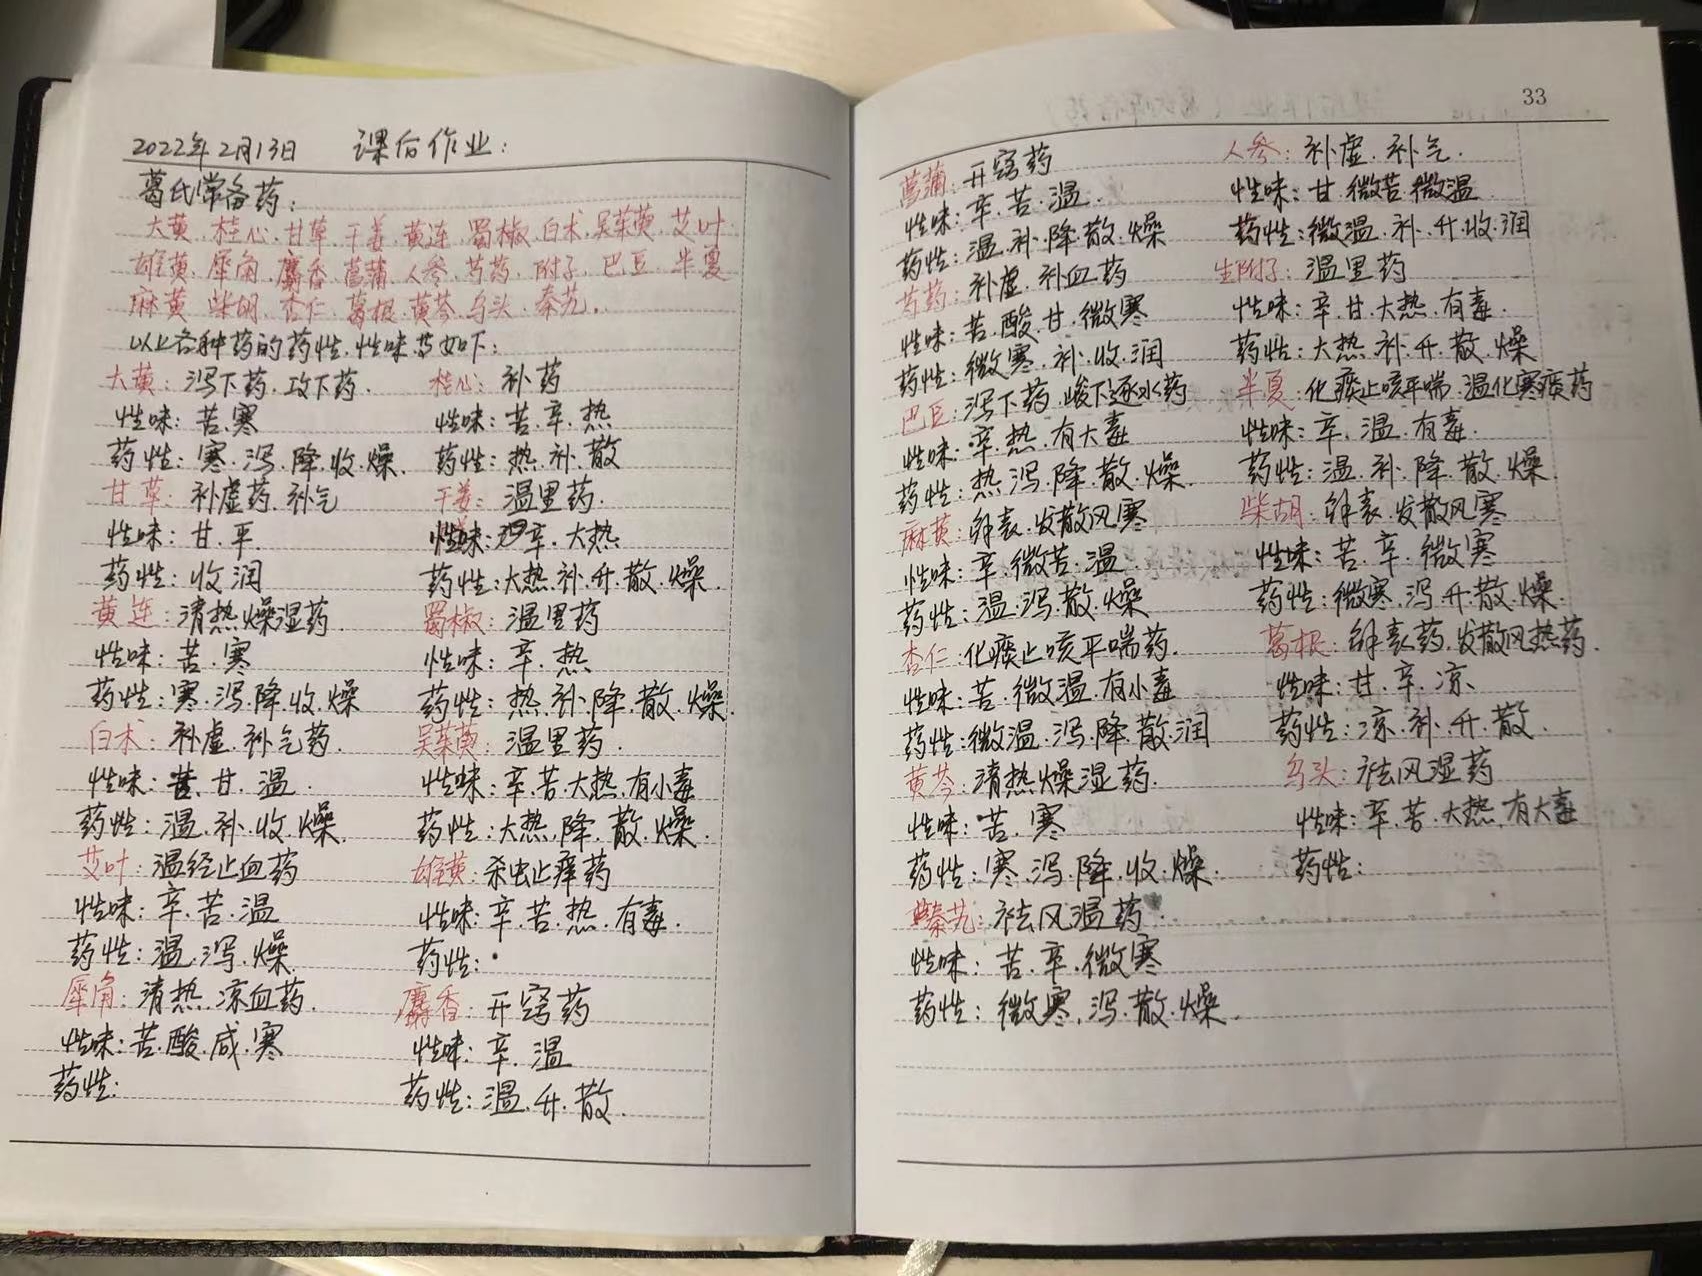 2022年2月13日 课后作业:
葛氏常备药:
大黄.桂心.甘草.干姜.黄连.蜀椒.白术.吴茱萸.艾叶.
雄黄.犀角.麝香.菖蒲.人参.芍药.附子.巴豆.半夏
麻黄.柴胡.杏仁.葛根.黄芩.乌头.秦艽.
以上各种药的药性.性味等如下:
大黄: 泻下药.攻下药.
性味: 苦.寒
药性: 寒.泻.降.收.燥.
甘草: 补虚药.补气
性味: 甘.平.
药性: 收.润
黄连: 清热燥湿药.
性味: 苦.寒
药性: 寒.泻.降.收.燥
白术: 补虚.补气药.
性味: 苦.甘.温.
药性: 温.补.收.燥.
艾叶: 温经止血药
性味: 辛.苦.温
药性: 温.泻.燥
犀角: 清热.凉血药.
性味: 苦.酸.咸.寒
药性:
桂心: 补药
性味: 苦.辛.热
药性: 热.补.散
干姜: 温里药.
性味: 辛.大热
药性: 大热.补.升.散.燥.
蜀椒: 温里药
性味: 辛.热
药性: 热.补.降.散.燥.
吴茱萸: 温里药.
性味: 辛.苦.大热.有小毒
药性: 大热.降.散.燥.
雄黄: 杀虫止痒药
性味: 辛.苦.热.有毒.
药性:.
麝香: 开窍药
性味: 辛.温
药性: 温.升.散.
33
菖蒲: 开窍药
性味: 辛.苦.温.
药性: 温.补.降.散.燥
芍药: 补虚.补血药
性味: 苦.酸.甘.微寒
药性: 微寒.补.收.润
巴豆: 泻下药.峻下逐水药
性味: 辛.热.有大毒
药性: 热.泻.降.散.燥.
麻黄: 解表.发散风寒
性味: 辛.微苦.温.
药性: 温.泻.散.燥
杏仁: 化痰止咳平喘药.
性味: 苦.微温.有小毒
药性: 微温.泻.降.散.润
黄芩: 清热燥湿药.
性味: 苦.寒
药性: 寒.泻.降.收.燥.
秦艽: 祛风湿药.
性味: 苦.辛.微寒
药性: 微寒.泻.散.燥.
人参: 补虚.补气.
性味: 甘.微苦.微温
药性: 微温.补.升.收.润
生附子: 温里药
性味: 辛.甘.大热.有毒.
药性: 大热.补.升.散.燥
半夏: 化痰止咳平喘.温化寒痰药
性味: 辛.温.有毒.
药性: 温.补.降.散.燥.
柴胡: 解表.发散风寒
性味: 苦.辛.微寒
药性: 微寒.泻.升.散.燥.
葛根: 解表药.发散风热药.
性味: 甘.辛.凉.
药性: 凉.补.升.散.
乌头: 祛风湿药
性味: 辛.苦.大热.有大毒
药性: